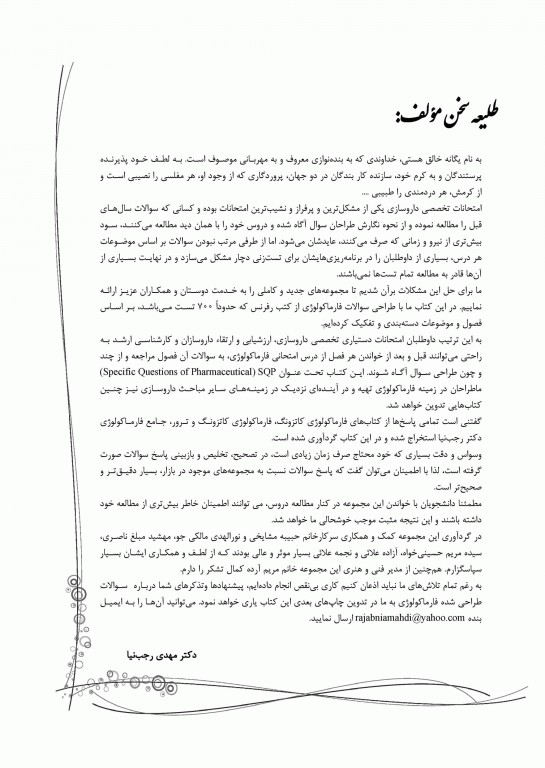 طلیعه سخن مؤلف:
به نام یگانه خالق هستی، خداوندی که به بنده‌نوازی معروف و به مهربانی موصوف است. به لطف خود پذیرنده
پرستندگان و به کرم خود، سازنده کار بندگان در دو جهان، پروردگاری که از وجود او، هر مفلسی را نصیبی است و
از کرمش، هر دردمندی را طبیبی ....
امتحانات تخصصی داروسازی یکی از مشکل‌ترین و پرفراز و نشیب‌ترین امتحانات بوده و کسانی که سوالات سال‌های
قبل را مطالعه نموده و از نحوه نگارش طراحان سوال آگاه شده و دروس خود را با همان دید مطالعه می‌کنند، سود
بیش‌تری از نیرو و زمانی که صرف می‌کنند، عایدشان می‌شود. اما از طرفی مرتب نبودن سوالات بر اساس موضوعات
هر درس، بسیاری از داوطلبان را در برنامه‌ریزی‌هایشان برای تست‌زنی دچار مشکل می‌سازد و در نهایت بسیاری از
آن‌ها قادر به مطالعه تمام تست‌ها نمی‌باشند.
ما برای حل این مشکلات برآن شدیم تا مجموعه‌های جدید و کاملی را به خدمت دوستان و همکاران عزیز ارائه
نماییم. در این کتاب ما با طراحی سوالات فارماکولوژی از کتب رفرنس که حدوداً ۷۰۰ تست می‌باشد، بر اساس
فصول و موضوعات دسته‌بندی و تفکیک کرده‌ایم.
به این ترتیب داوطلبان امتحانات دستیاری تخصصی داروسازی، ارزشیابی و ارتقاء داروسازان و کارشناسی ارشد به
راحتی می‌توانند قبل و بعد از خواندن هر فصل از درس امتحانی فارماکولوژی، به سوالات آن فصول مراجعه و از چند
و چون طراحی سوال آگاه شوند. این کتاب تحت عنوان SQP (Specific Questions of Pharmaceutical)
ماطراحان در زمینه فارماکولوژی تهیه و در آینده‌ای نزدیک در زمینه‌های سایر مباحث داروسازی نیز چنین
کتاب‌هایی تدوین خواهد شد.
گفتنی است تمامی پاسخ‌ها از کتاب‌های فارماکولوژی کاتزونگ، فارماکولوژی کاتزونگ و ترور، جامع فارماکولوژی
دکتر رجب‌نیا استخراج شده و در این کتاب گردآوری شده است.
وسواس و دقت بسیاری که خود محتاج صرف زمان زیادی است، در تصحیح، تخلیص و بازبینی پاسخ سوالات صورت
گرفته است، لذا با اطمینان می‌توان گفت که پاسخ سوالات نسبت به مجموعه‌های موجود در بازار، بسیار دقیق‌تر و
صحیح‌تر است.
مطمئنا دانشجویان با خواندن این مجموعه در کنار مطالعه دروس، می توانند اطمینان خاطر بیش‌تری از مطالعه خود
داشته باشند و این نتیجه مثبت موجب خوشحالی ما خواهد شد.
در گردآوری این مجموعه کمک و همکاری سرکارخانم حبیبه مشایخی و نورالهدی مالکی جو، مهشید مبلغ ناصری،
سیده مریم حسینی‌خواه، آزاده علائی و نجمه علائی بسیار موثر و عالی بودند که از لطف و همکاری ایشان بسیار
سپاسگزارم. هم‌چنین از مدیر فنی و هنری این مجموعه خانم مریم آرده کمال تشکر را دارم.
به رغم تمام تلاش‌های ما نباید اذعان کنیم کاری بی‌نقص انجام داده‌ایم، پیشنهادها وتذکرهای شما درباره سوالات
طراحی شده فارماکولوژی به ما در تدوین چاپ‌های بعدی این کتاب یاری خواهد نمود. می‌توانید آن‌ها را به ایمیل
بنده rajabniamahdi@yahoo.com ارسال نمایید.
دکتر مهدی رجب‌نیا